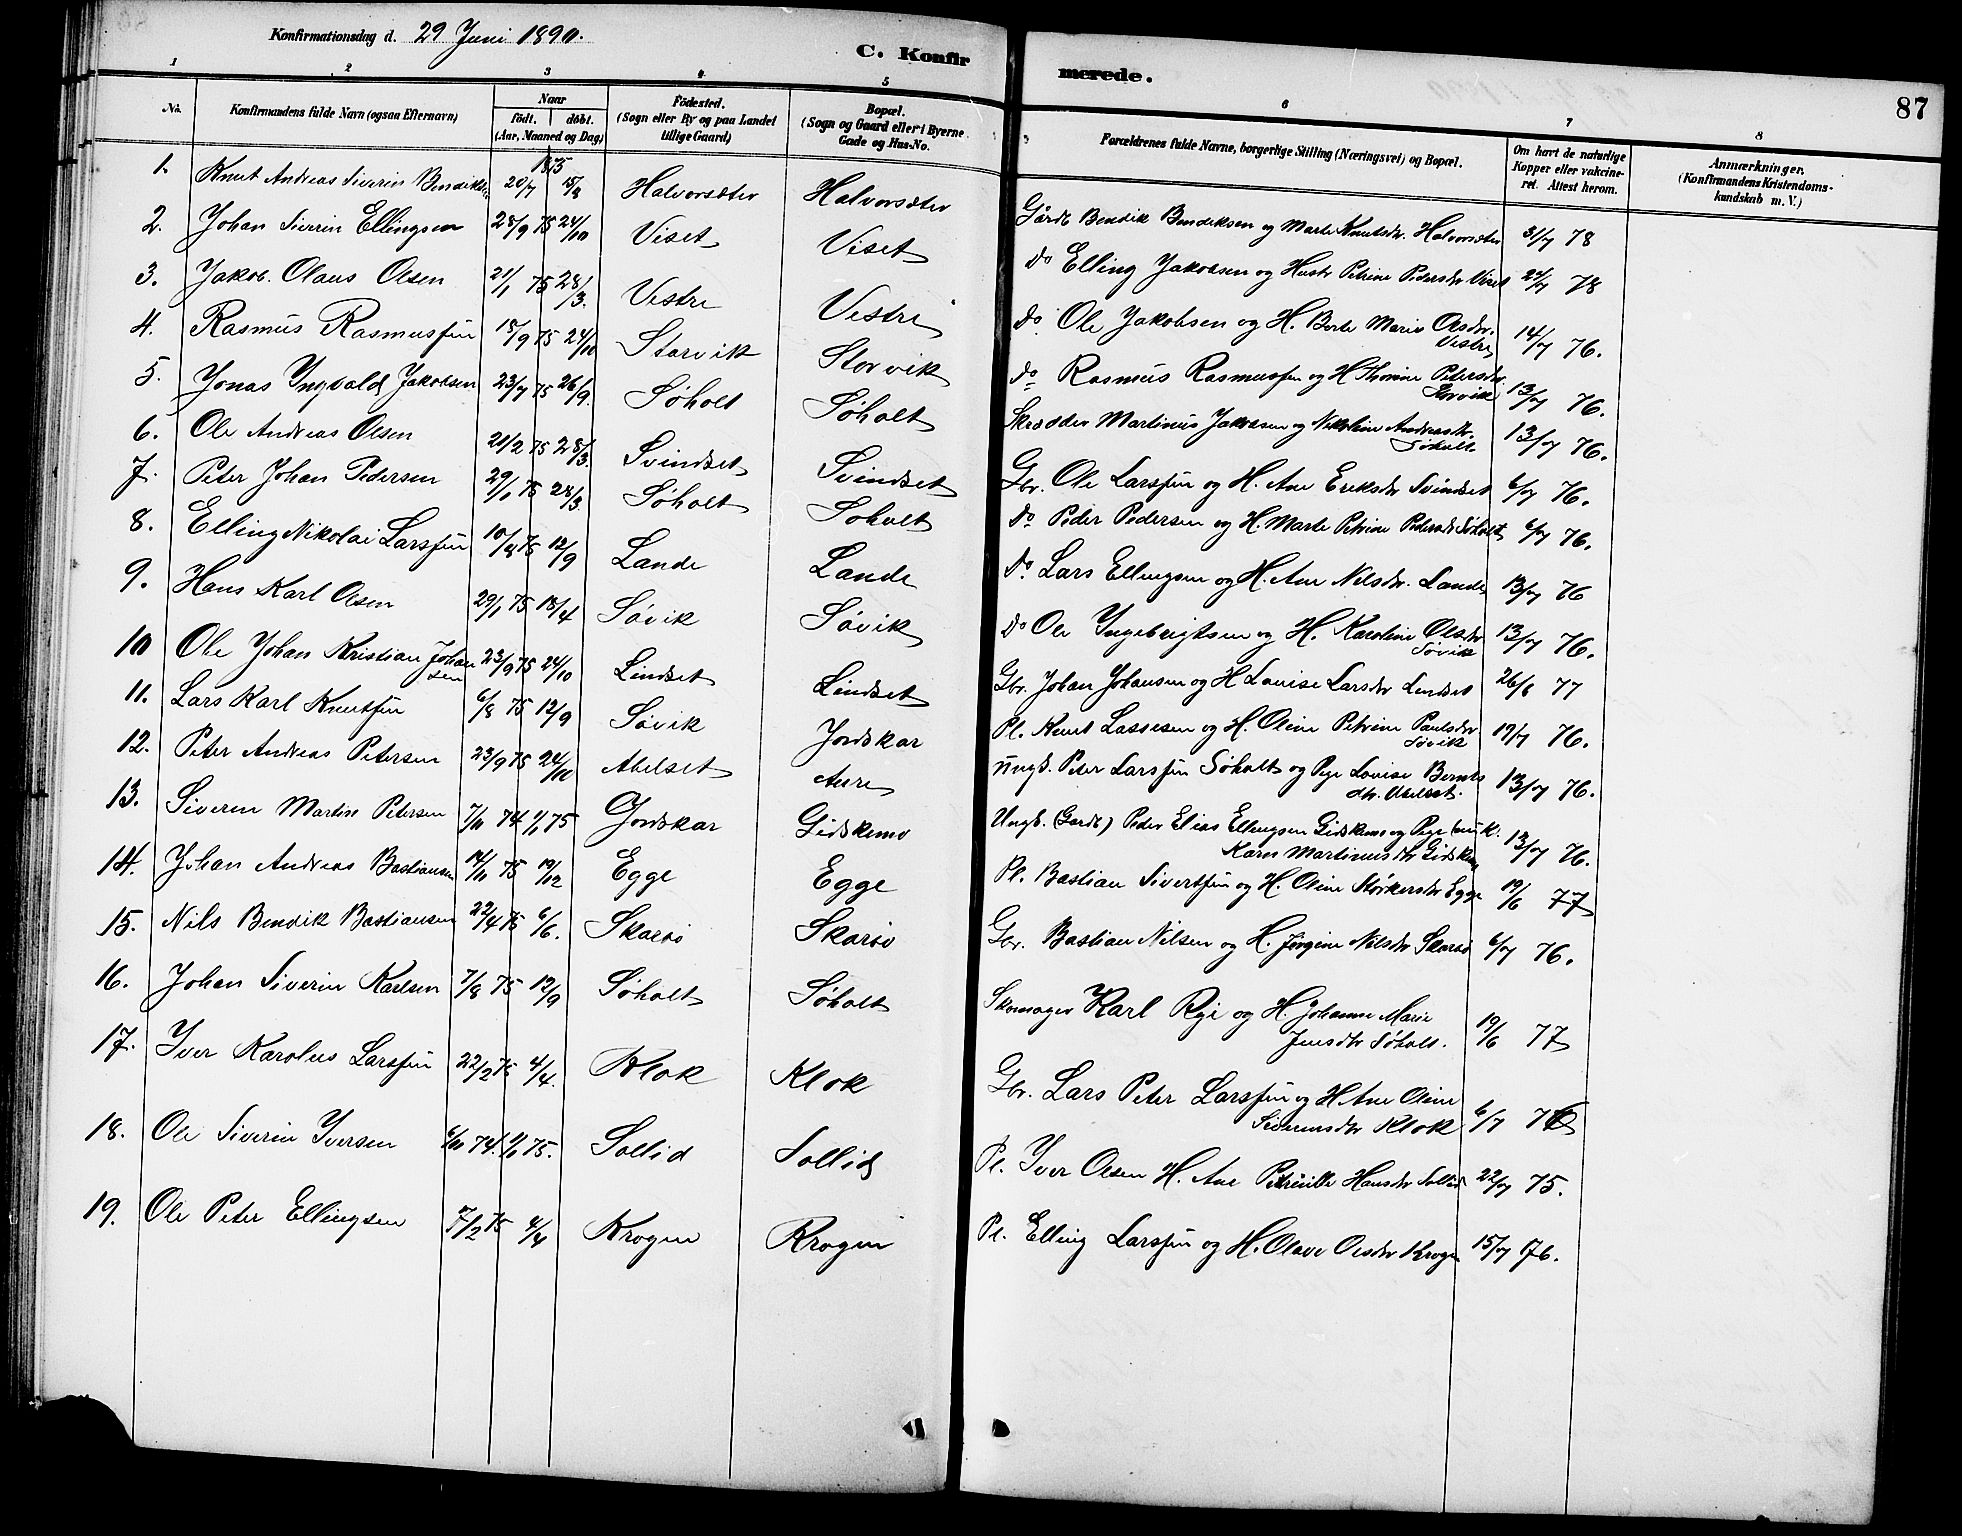 Konfirmationsdag d. 29 Juni 1890.
C. Konfir merede.
87
1 2 3 4 5 6 7 8
No.
Konfirmandens fulde Navn (ogsaa Efternavn)
Naar
födt. döbt.
(Aar, Maaned og Dag)
Födested.
(Sogn eller By og paa Landet
tillige Gaard)
Bopæl.
(Sogn og Gaard eller i Byerne
Gade og Hus-No.
Forældrenes fulde Navne, borgerlige Stilling (Næringsvei) og Bopæl.
Om havt de naturlige
Kopper eller vakcine-
ret. Attest herom.
Anmærkninger.
(Konfirmandens Kristendoms-
kundskab m. V.)
1875
1. Knut Andreas Siverin Bendiksen 20/7 15/8 Halvorsæter Halvorsæter Gårdb Bendik Bendiksen og Marte Knutsdr. Halvorsæter 31/7 78
2. Johan Siverin Ellingsen 28/9 75 24/10 Viset Viset do Elling Jakobsen og Hustr Petrine Pedersdr Viset 24/7 78
3. Jakob Olaus Olsen 21/1 75 28/3. Vestre Vestre do Ole Jakobsen og H. Berte Marie Olsdr. Vestre 14/7 76.
4. Rasmus Rasmussen 18/9 75 24/10 Storvik Storvik do Rasmus Rasmussen og H Thorine Petersdr. Storvik 13/7 76.
5. Jonas Ingvald Jakobsen 23/7 75 26/9. Søholt Søholt Skrædder Martinus Jakobsen og Nikoline Andreasdr. Søholt. 13/7 76.
6. Ole Andreas Olsen 21/2 75 28/3. Svindset Svindset Gbr. Ole Larssen og H. Ane Eriksdr Svindset 6/7 76.
7. Peter Johan Pedersen 29/1 75 28/3. Søholt Søholt do Peder Pedersen og H. Marte Petrine Pedersdr Søholt 6/7 76.
8. Elling Nikolai Larssen 10/8 75 12/9 Lande Lande do Lars Ellingsen og H. Ane Nilsdr. Lande 13/7 76
9. Hans Karl Olsen 29/1 75 18/4 Søvik Søvik do Ole Ingebrigtsen og H. Karoline Olsdr Søvik 13/7 76.
10 Ole Johan Kristian Johansen 23/9 75 24/10 Lindset Lindset Gbr. Johan Johansen og H Louise Larsdr Lindset 26/6 77
11. Lars Karl Knutsen 6/8 75 12/9 Søvik Jordskar Pl. Knut Lassesen og H. Oline Petrine Paulsdr Søvik 19/7 76.
12. Peter Andreas Petersen 23/9 75 24/10 Abelset Aure Ungk. Peter Larssen Søholt og Pige Lovise Bernts dtr. Abelset. 13/7 76.
13. Siveren Martin Petersen 7/11 74 1/1 75 Jordskar Gidskemo Ungk. (Gårdb) Peder Elias Ellingsen Gidskemo og Pige (nu K. Karn Martinusdtr Gidskem 13/7 76.
14. Johan Andreas Bastiansen 14/11 75 19/12 Egge Egge Pl. Bastian Sivertsen og H. Oline Størkersdr Egge 19/6 77
15. Nils Bendik Bastiansen 22/4 75 6/6. Skarsø Skarsø Gbr. Bastian Nilsen og H. Jørgine Nilsdr Skarsø 6/7 76.
16. Johan Siverin Karlsen 7/8 75 12/9 Søholt Søholt Skomager Karl Rye og H. Johanne Marie Jensdtr Søholt. 19/6 77
17. Iver Karolus Larssen 22/2 75 4/4. Klok Klok Gbr. Lars Peter Larssen og H Ane Oline Siverinsdtr Klok 6/7 76
18. Ole Siverin Iversen 6/11 74. 1/1 75. Sollid Sollid Pl. Iver Olsen H. Ane Petrinille Hansdtr Sollid 22/7 75.
19. Ole Peter Ellingsen 7/2 75 4/4 Krogen Krogen Pl. Elling Larssen og H. Olave Olsdtr Krogen 15/7 76.